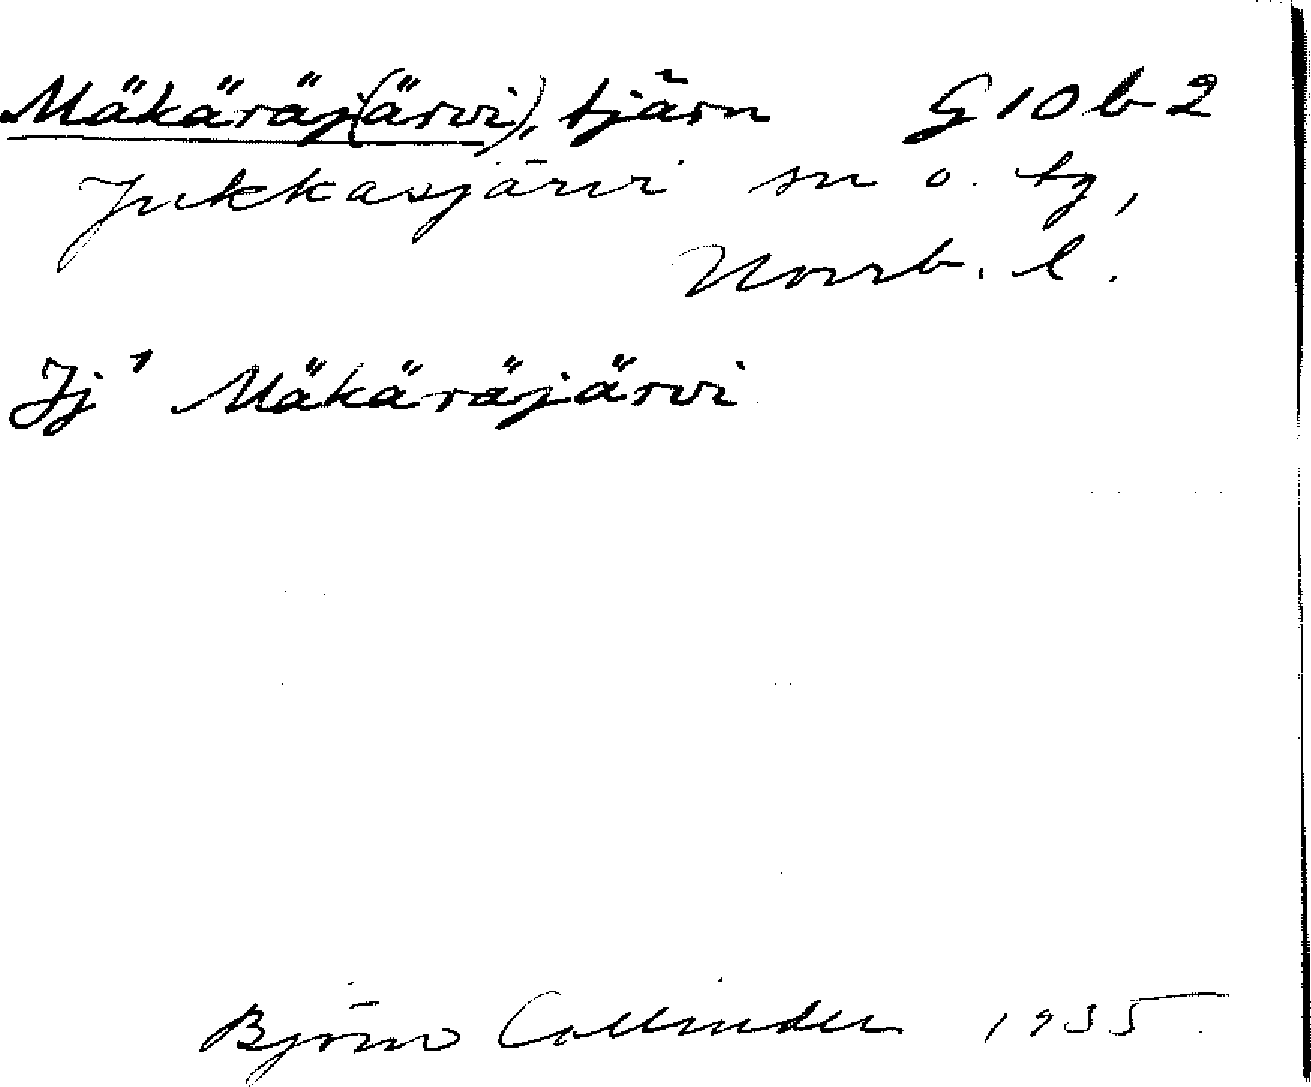 Mäkäräj(ärvi), tjärn G10b2
Jukkasjärvi sn o. tg,
Norrb. l.
Jj¹ Mäkäräjärvi
Björn Collinder 1935.